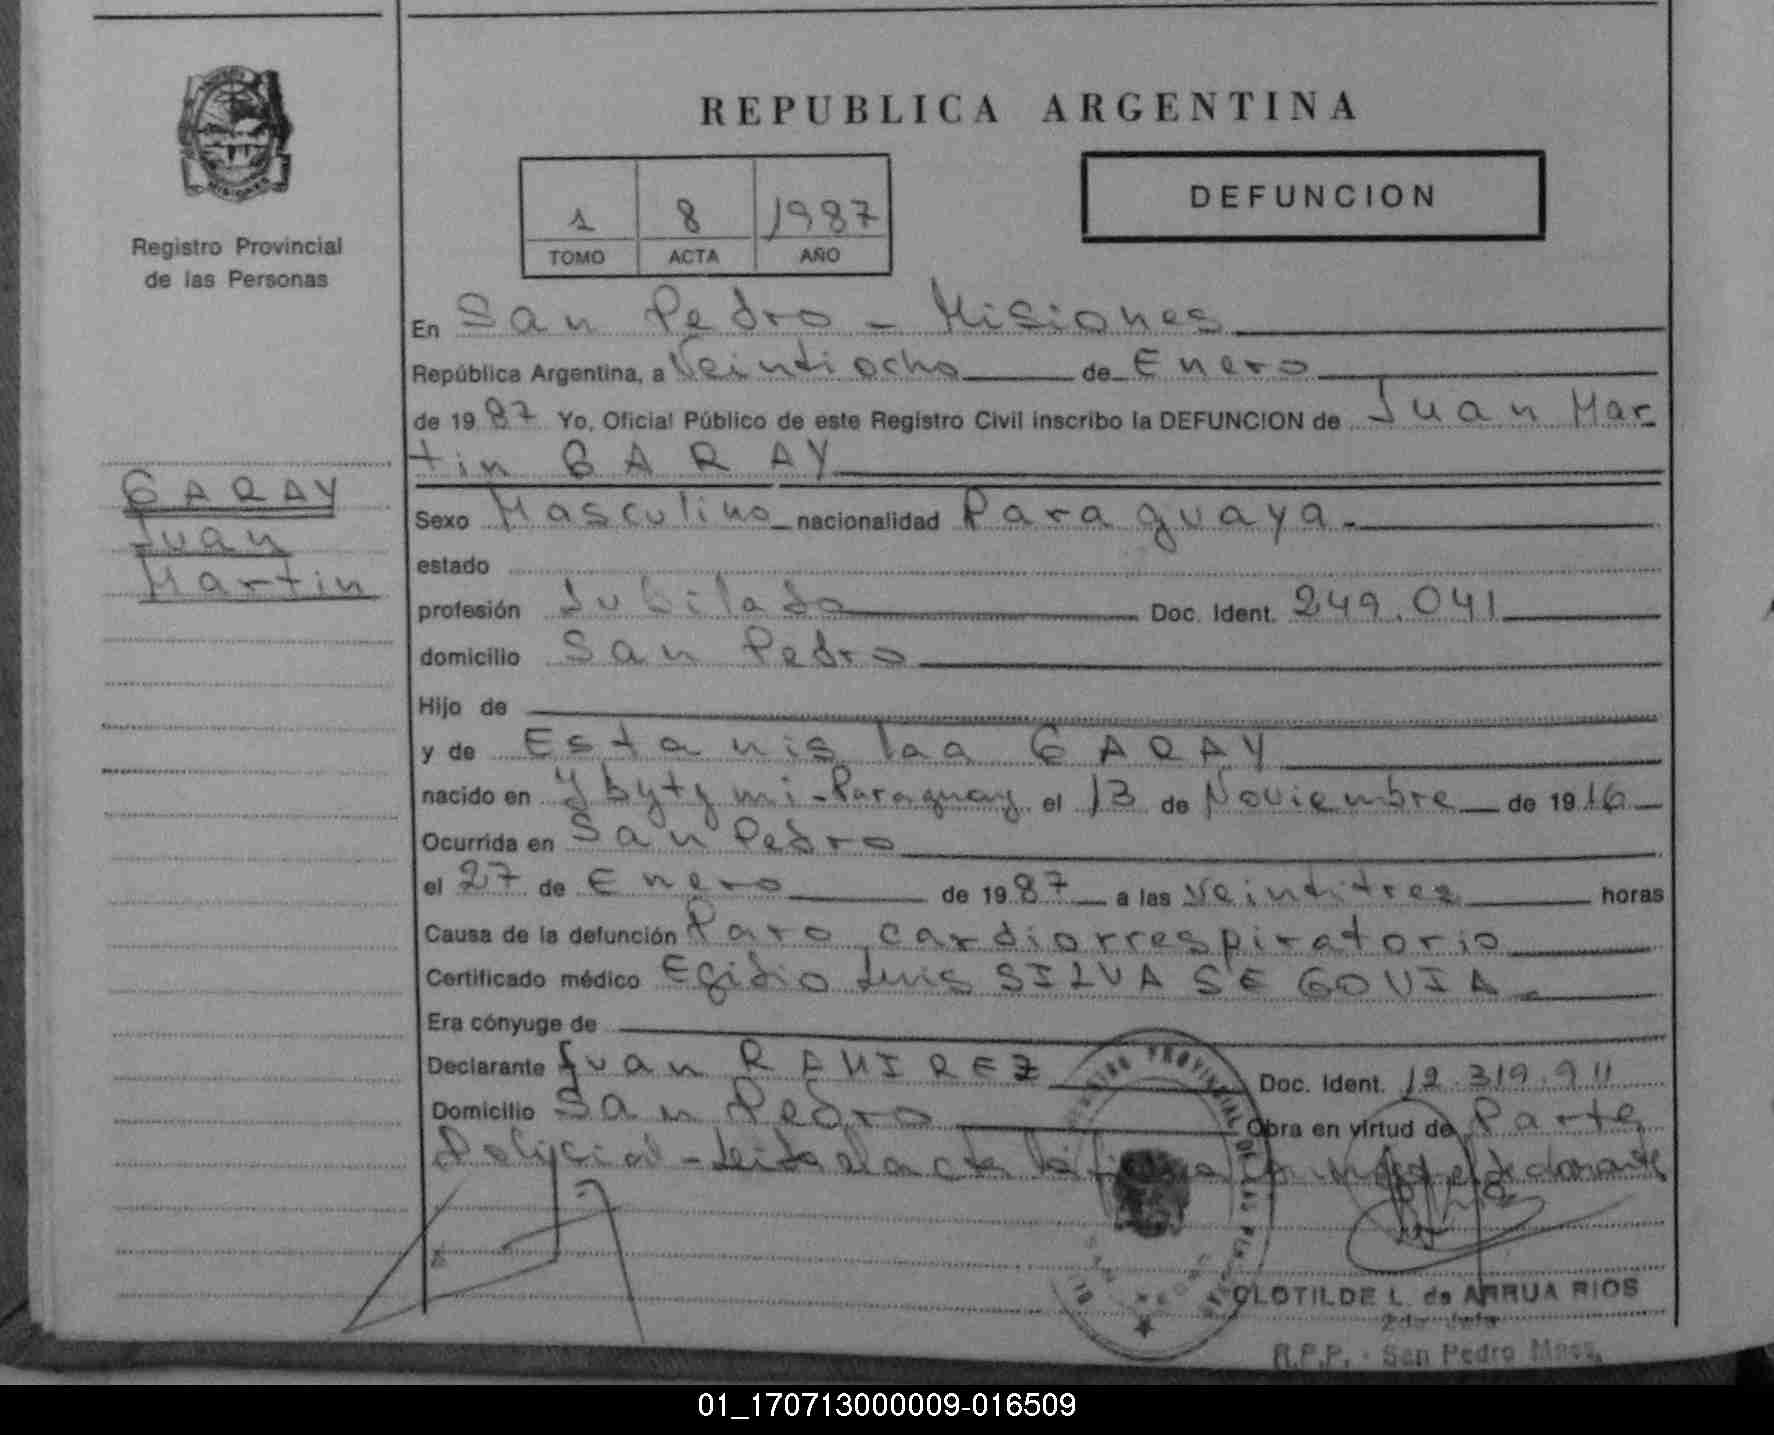 REPUBLICA ARGENTINA
DEFUNCION
1 8 1987
TOMO ACTA AÑO
MISIONES
Registro Provincial
de las Personas
GARAY
Juan
Martin
En San Pedro - Misiones
República Argentina, a Veintiocho de Enero
de 1987 Yo, Oficial Público de este Registro Civil inscribo la DEFUNCION de Juan Mar
tin GARAY
Sexo Masculino nacionalidad Paraguaya.
estado
profesión Jubilado Doc. Ident. 249.041
domicilio San Pedro
Hijo de
y de Estanislaa GARAY
nacido en Ybytymi - Paraguay el 13 de Noviembre de 1916
Ocurrida en San Pedro
el 27 de Enero de 1987 a las veintitres horas
Causa de la defunción Paro cardiorrespiratorio
Certificado médico Egidio Luis SILVA SEGOVIA
Era cónyuge de
Declarante Juan RAMIREZ Doc. Ident. 12.319.911
Domicilio San Pedro Obra en virtud de Parte
Policial - Leida el acta la firma el declarante
REGISTRO PROVINCIAL DE LAS PERSONAS
CLOTILDE L. de ARRUA RIOS
R.P.P. - San Pedro Mnes.
01_170713000009-016509